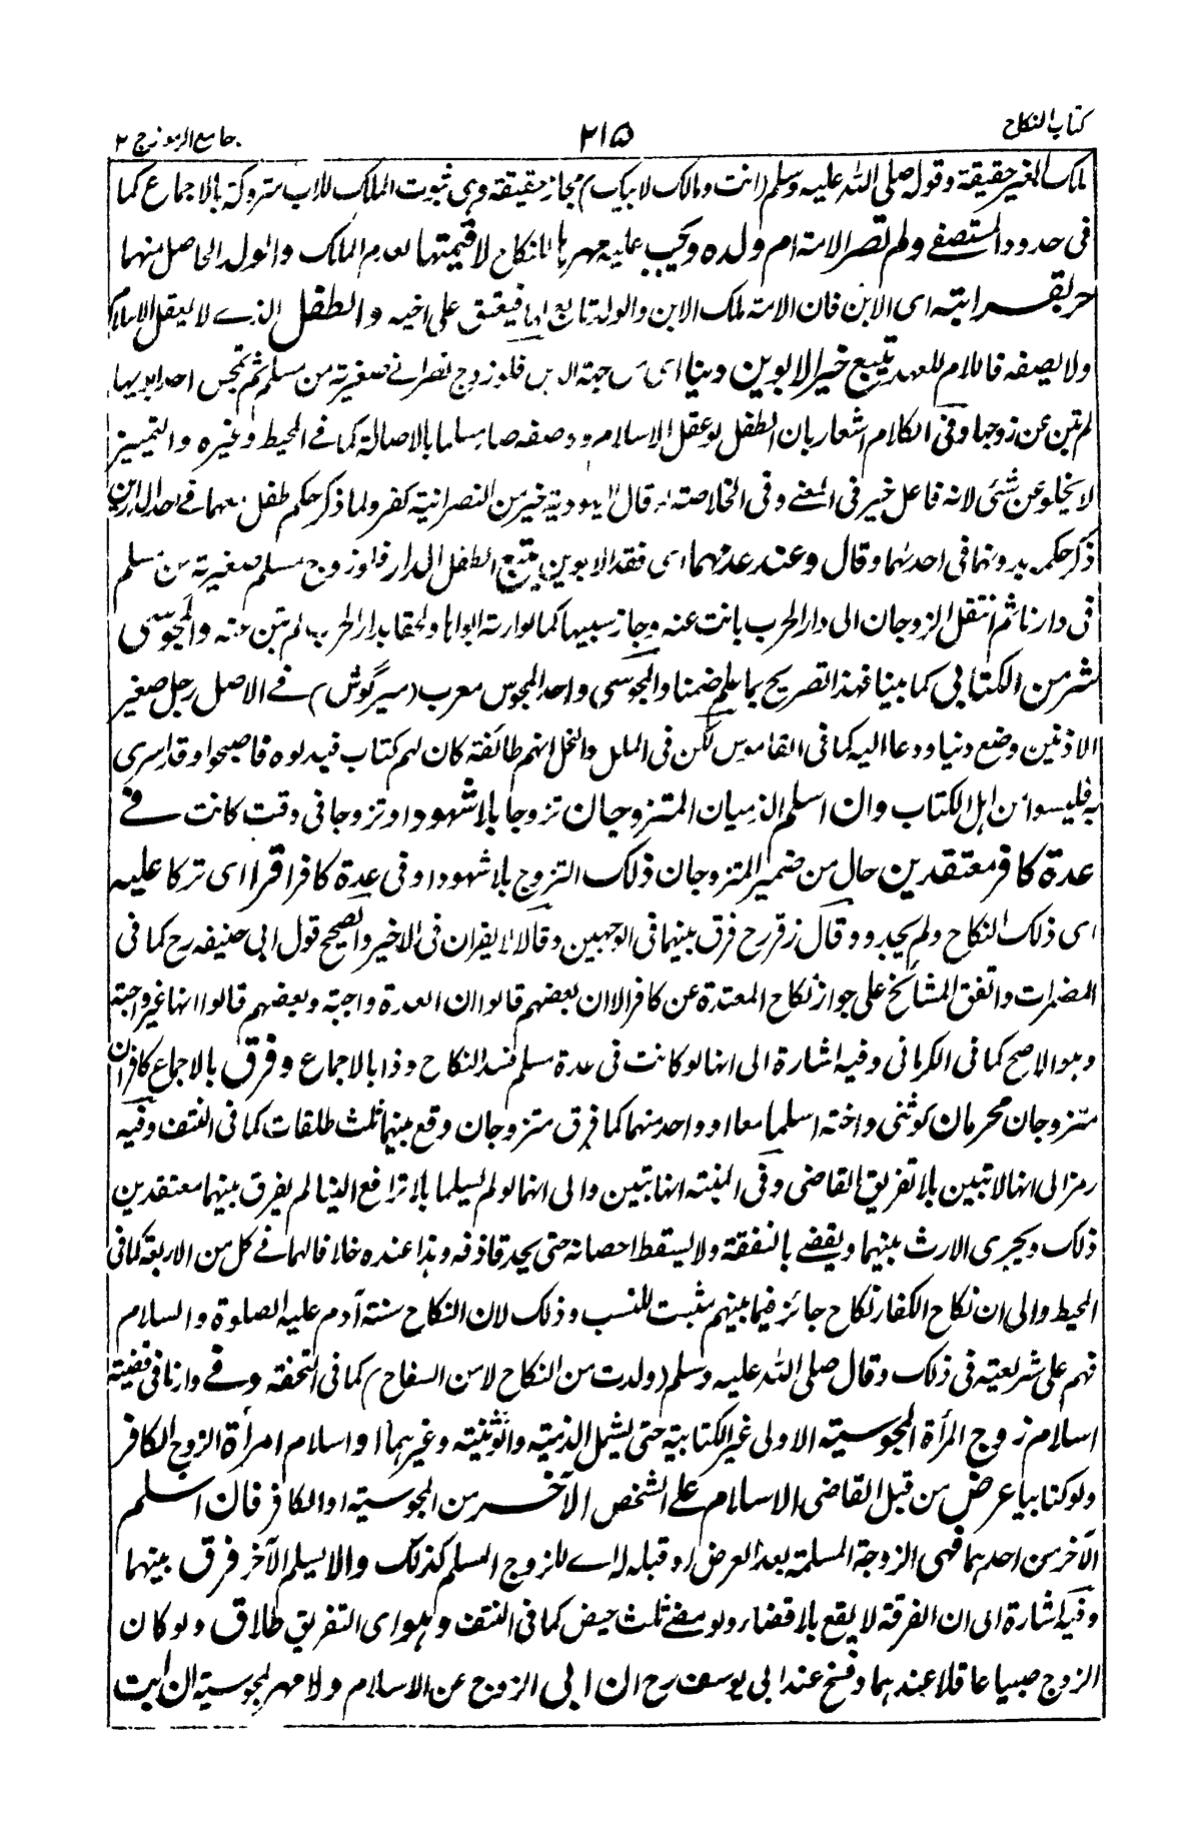 كتاب النكاح
٢١۵
جامع الرموز ج ٢
ملك الغير حقيقة وقوله صلى الله عليه وسلم (انت ومالك لابيك) مجاز حقيقة وهى ثبوت الملك للاب متروكة بالاجماع كما
فى حدود المستصفے ولم تصر الامة ام ولده ويجب عليه مهرها بالنكاح لا قيمتها لعدم الملك والولد الحاصل منها
حر بقرابته اى الابن فان الامة ملك الابن والولد تابع لها فيعتق على اخيه والطفل الذے لا يعقل الاسلام
ولا يصفه فاللام للعهد يتبع خير الابوين دينا اى من جهة الدين فلو زوج نصرانے صغيرته من مسلم ثم تمجس احد ابويها
لم تبن عن زوجها وفى الكلام اشعار بان الطفل لو عقل الاسلام ووصفه صار مسلما بالاصالة كما فے المحيط وغيره والتمييز
لا يخلو عن شئى لانه فاعل خير فى المعنے وفى الخلاصة لو قال اليهودية خير من النصرانية كفر ولما ذكر حكم طفل معهما فے احد الدارين
ذكر حكمه بدونهما فى احدهما وقال وعند عدمهما اى فقد الابوين يتبع الطفل الدار فلو زوج مسلم صغيرته من مسلم
فى دارنا ثم انتقل الزوجان الى دار الحرب بانت عنه وجاز سبيها كما لو ارتد ابواها ولحقا بدار الحرب لم تبن عنه والمجوسى
شر من الكتابى كما بينا فهذا تصريح بما علم ضمنا والمجوسى واحد المجوس معرب (سيرگوش) فے الاصل رجل صغير
الاذنين وضع دينا ودعا اليه كما فى القاموس لكن فى الملل والنحل انهم طائفة كان لهم كتاب فبدلوه فاصبحوا وقد اسرى
به فليسوا من اهل الكتاب وان اسلم الذميان المتزوجان تزوجا بلا شهود او تزوجا فى وقت كانت فے
عدة كافر معتقدين حال من ضمير المتزوجان ذلك التزوج بلا شهود او فى عدة كافر اقرا اى تركا عليه
اى ذلك النكاح ولم يجددوه وقال زفر رح فرق بينهما فى الوجهين وقالا لا يقران فى الاخير والصحيح قول ابى حنيفه رح كما فى
المضمرات واتفق المشائخ على جواز نكاح المعتدة عن كافر الا ان بعضهم قالوا ان العدة واجبة وبعضهم قالوا انها غير واجبة
وهو الاصح كما فى الكرمانى وفيه اشارة الى انها لو كانت فى عدة مسلم فسد النكاح وذا بالاجماع وفرق بالاجماع كافران
متزوجان محرمان كوثنى واخته اسلما معا او واحد منهما كما فرق متزوجان وقع بينهما ثلث طلقات كما فى النتف وفيه
رمز الى انها لا تبين بلا تفريق القاضى وفى المنية انها تبين والى انهما لو لم يسلما بلا ترافع الينا لم يفرق بينهما معتقدين
ذلك ويجرى الارث بينهما ويقضے بالنفقة ولا يسقط احصانه حتى يحد قاذفه وهذا عنده خلافا لهما فے كل من الاربعة كما فى
المحيط والى ان نكاح الكفار نكاح جائز فيما بينهم مثبت للنسب وذلك لان النكاح سنة آدم عليه الصلوة والسلام
فهم على شريعته فى ذلك وقال صلى الله عليه وسلم (ولدت من النكاح لا من السفاح) كما فى التحفة وفے دارنا فى قضية
اسلام زوج المرأة المجوسية الاولى غير الكتابية حتى يشمل الذمية والوثنية وغيرهما او اسلام امرأة الزوج الكافر
ولو كتابيا عرض من قبل القاضى الاسلام على الشخص الآخر من المجوسية او الكافر فان اسلم
الآخر من احدهما فهى الزوجة المسلمة بعد العرض او قبله له اے للزوج المسلم كذلك والا يسلم الآخر فرق بينهما
وفيه اشارة الى ان الفرقة لا يقع بلا قضاء ولو مضے ثلث حيض كما فى النتف وهو اى التفريق طلاق ولو كان
الزوج صبيا عاقلا عندهما وفسخ عند ابى يوسف رح ان ابى الزوج عن الاسلام ولا مهر لمجوسية ان ابت